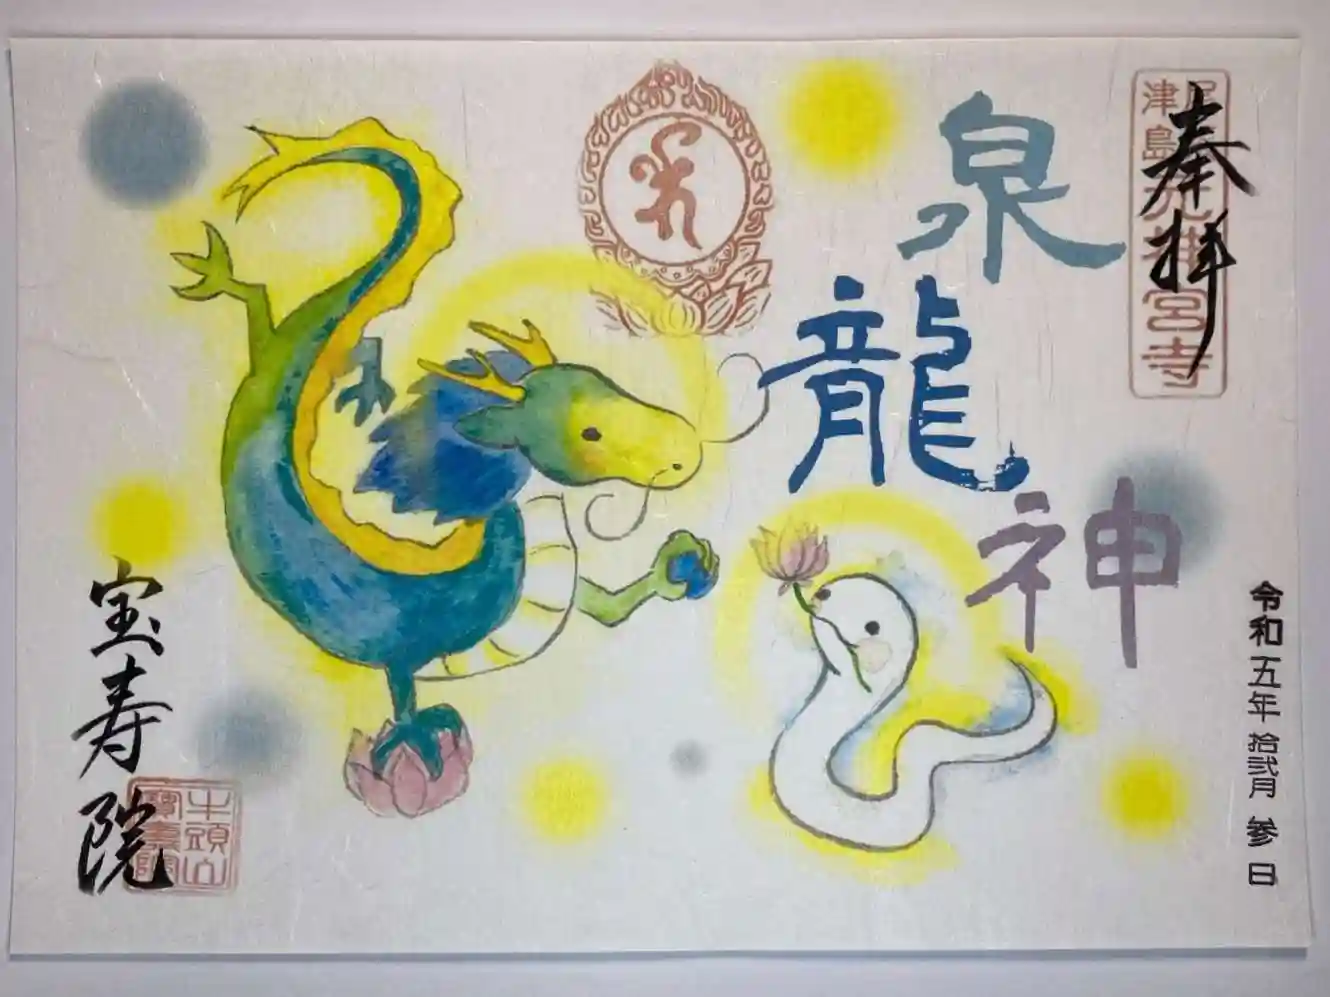 奉拝
津島
宮寺
泉
龍
神
令和五年 拾弐月 参日
宝寿院
牛頭山
寶壽院